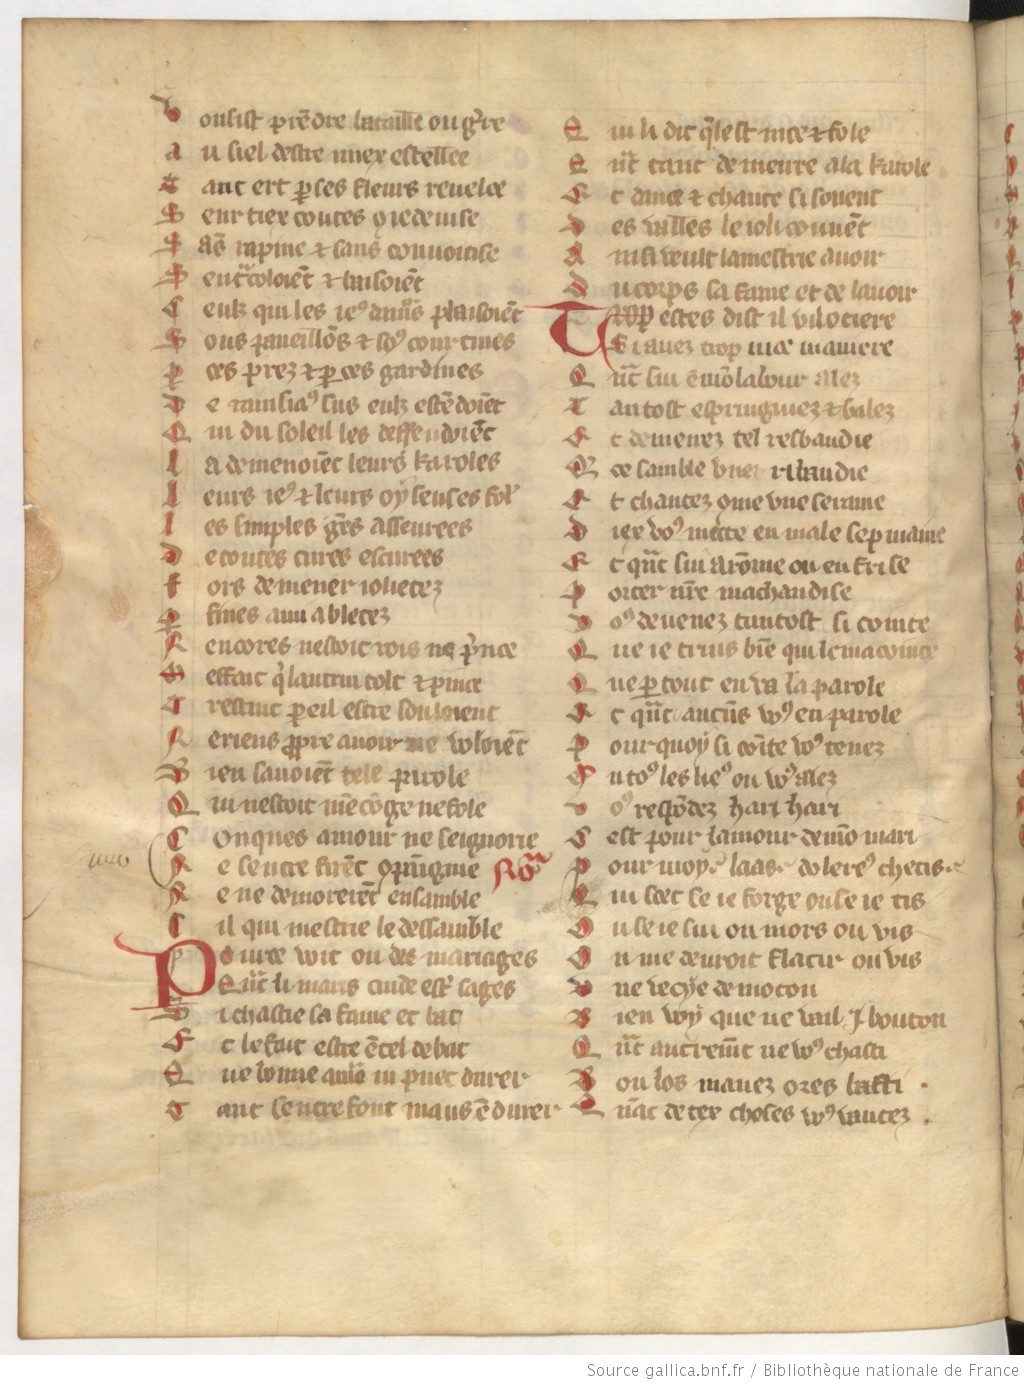 Vousist prendre bataille ou gr̄re
Au siel destre miex estellee
Tant ert p ses fleurs revelee
Seur tiex coutes q̄ ie devise
Sās rapine & sans convoitise
Sentracoloiēt & baisoiēt
Ceulz qui les ieꝰ damꝰs plaisoiēt
Sous paveillōs & soꝰ courtines
Per ces prez & p ces gardines
De rainsiaꝰ sus eulz estēdoiēt
Qui du soleil les deffendoiēt
La demenoiēt leurs karoles
Leurs ieꝰ & leurs oyseuses fol
Les simples gēs asseurees
De toutes cures escurees
Fors de mener iolietez
Par fines amiabletez
Encores nestoit rois ne p̄nce
Meffait q̄ lautrui tolt & pince
Trestuit pareil estre souloient
Ne riens ppre avoir ne voloiēt
Bien savoiēt tele parole
Qui nestoit mēcōge ne fole
Conques amour ne seignorie
Ne sentre firēt cōpaignie
Ne ne demorerēt ensamble
Cil qui mestrie le dessamble
Pource voit on des mariages
Quāt li maris cuide estr̄ sages
Si chastie sa fame et bat
Et le fait estre ē tel debat
Que bonne amōr ni puet durer
Tant sentre font maus ēdurer
Qui li dit q̄lest nice & fole
Quāt tant demeure a la karole
Et dance & chante si sovent
Des valles le ioli convēt
Ainsi veult la mestrie avoir
Du corps sa fame et de lavoir
Trop estes dist il vilotiere
Si avez trop nice maniere
Quāt sui ē mō labour alez
Tantost espringuiez & balez
Et demenez tel resbaudie
Que ce samble une ribaudie
Et chantez cōme une seraine
Diex voꝰ mette en male sepmaine
Et quāt sui a rōme ou en frise
Porter nr̄e machandise
Voꝰ devenez tantost si cointe
Que ie truis biē qui lemacointe
Que par tout en va la parole
Et quāt aucūs voꝰ en parole
Pour quoy si coīte voꝰ tenez
En toꝰ les lieꝰ ou voꝰ alez
Voꝰ respōdez hari hari
Cest pour lamour de mō mari
Pour moy laas dolereꝰ chetis
Qui scet se ie forge ou se ie tis
Ou se ie sui ou mors ou vis
On me devroit flatir ou vis
Une vecye de mouton
Bien voy que ne vail .I. bouton
Quāt autremēt ne voꝰ chasti
Bon los mavez ores basti
Quāt de tex choses voꝰ vantez